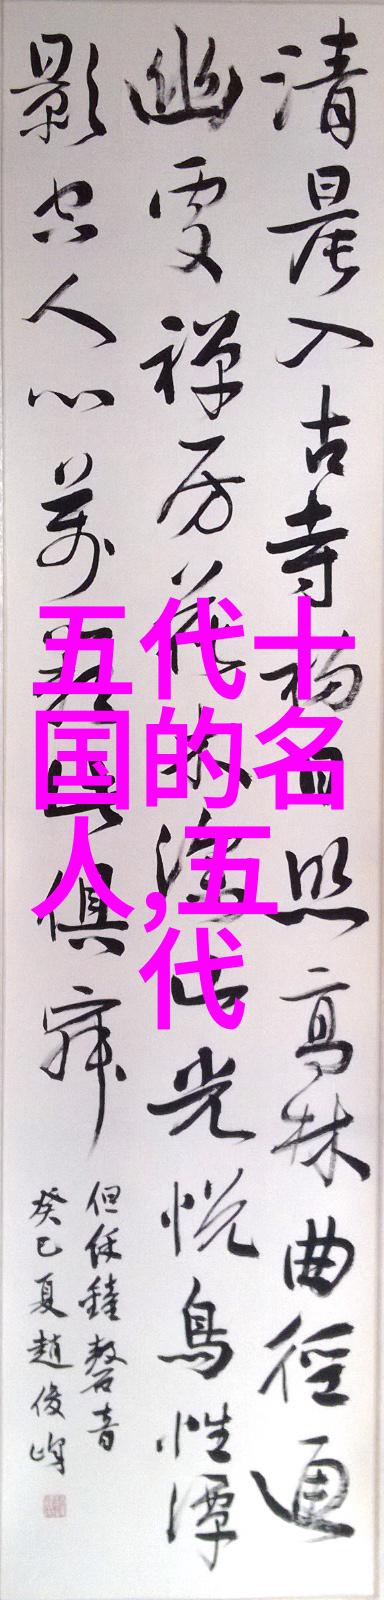 清晨入古寺初日照高林曲徑通
幽處禪房花木深山光悅鳥性潭
影空人心萬籟此俱寂
但餘鐘磬音
癸巳夏趙俊峰
五代十
国的名
人,五
代